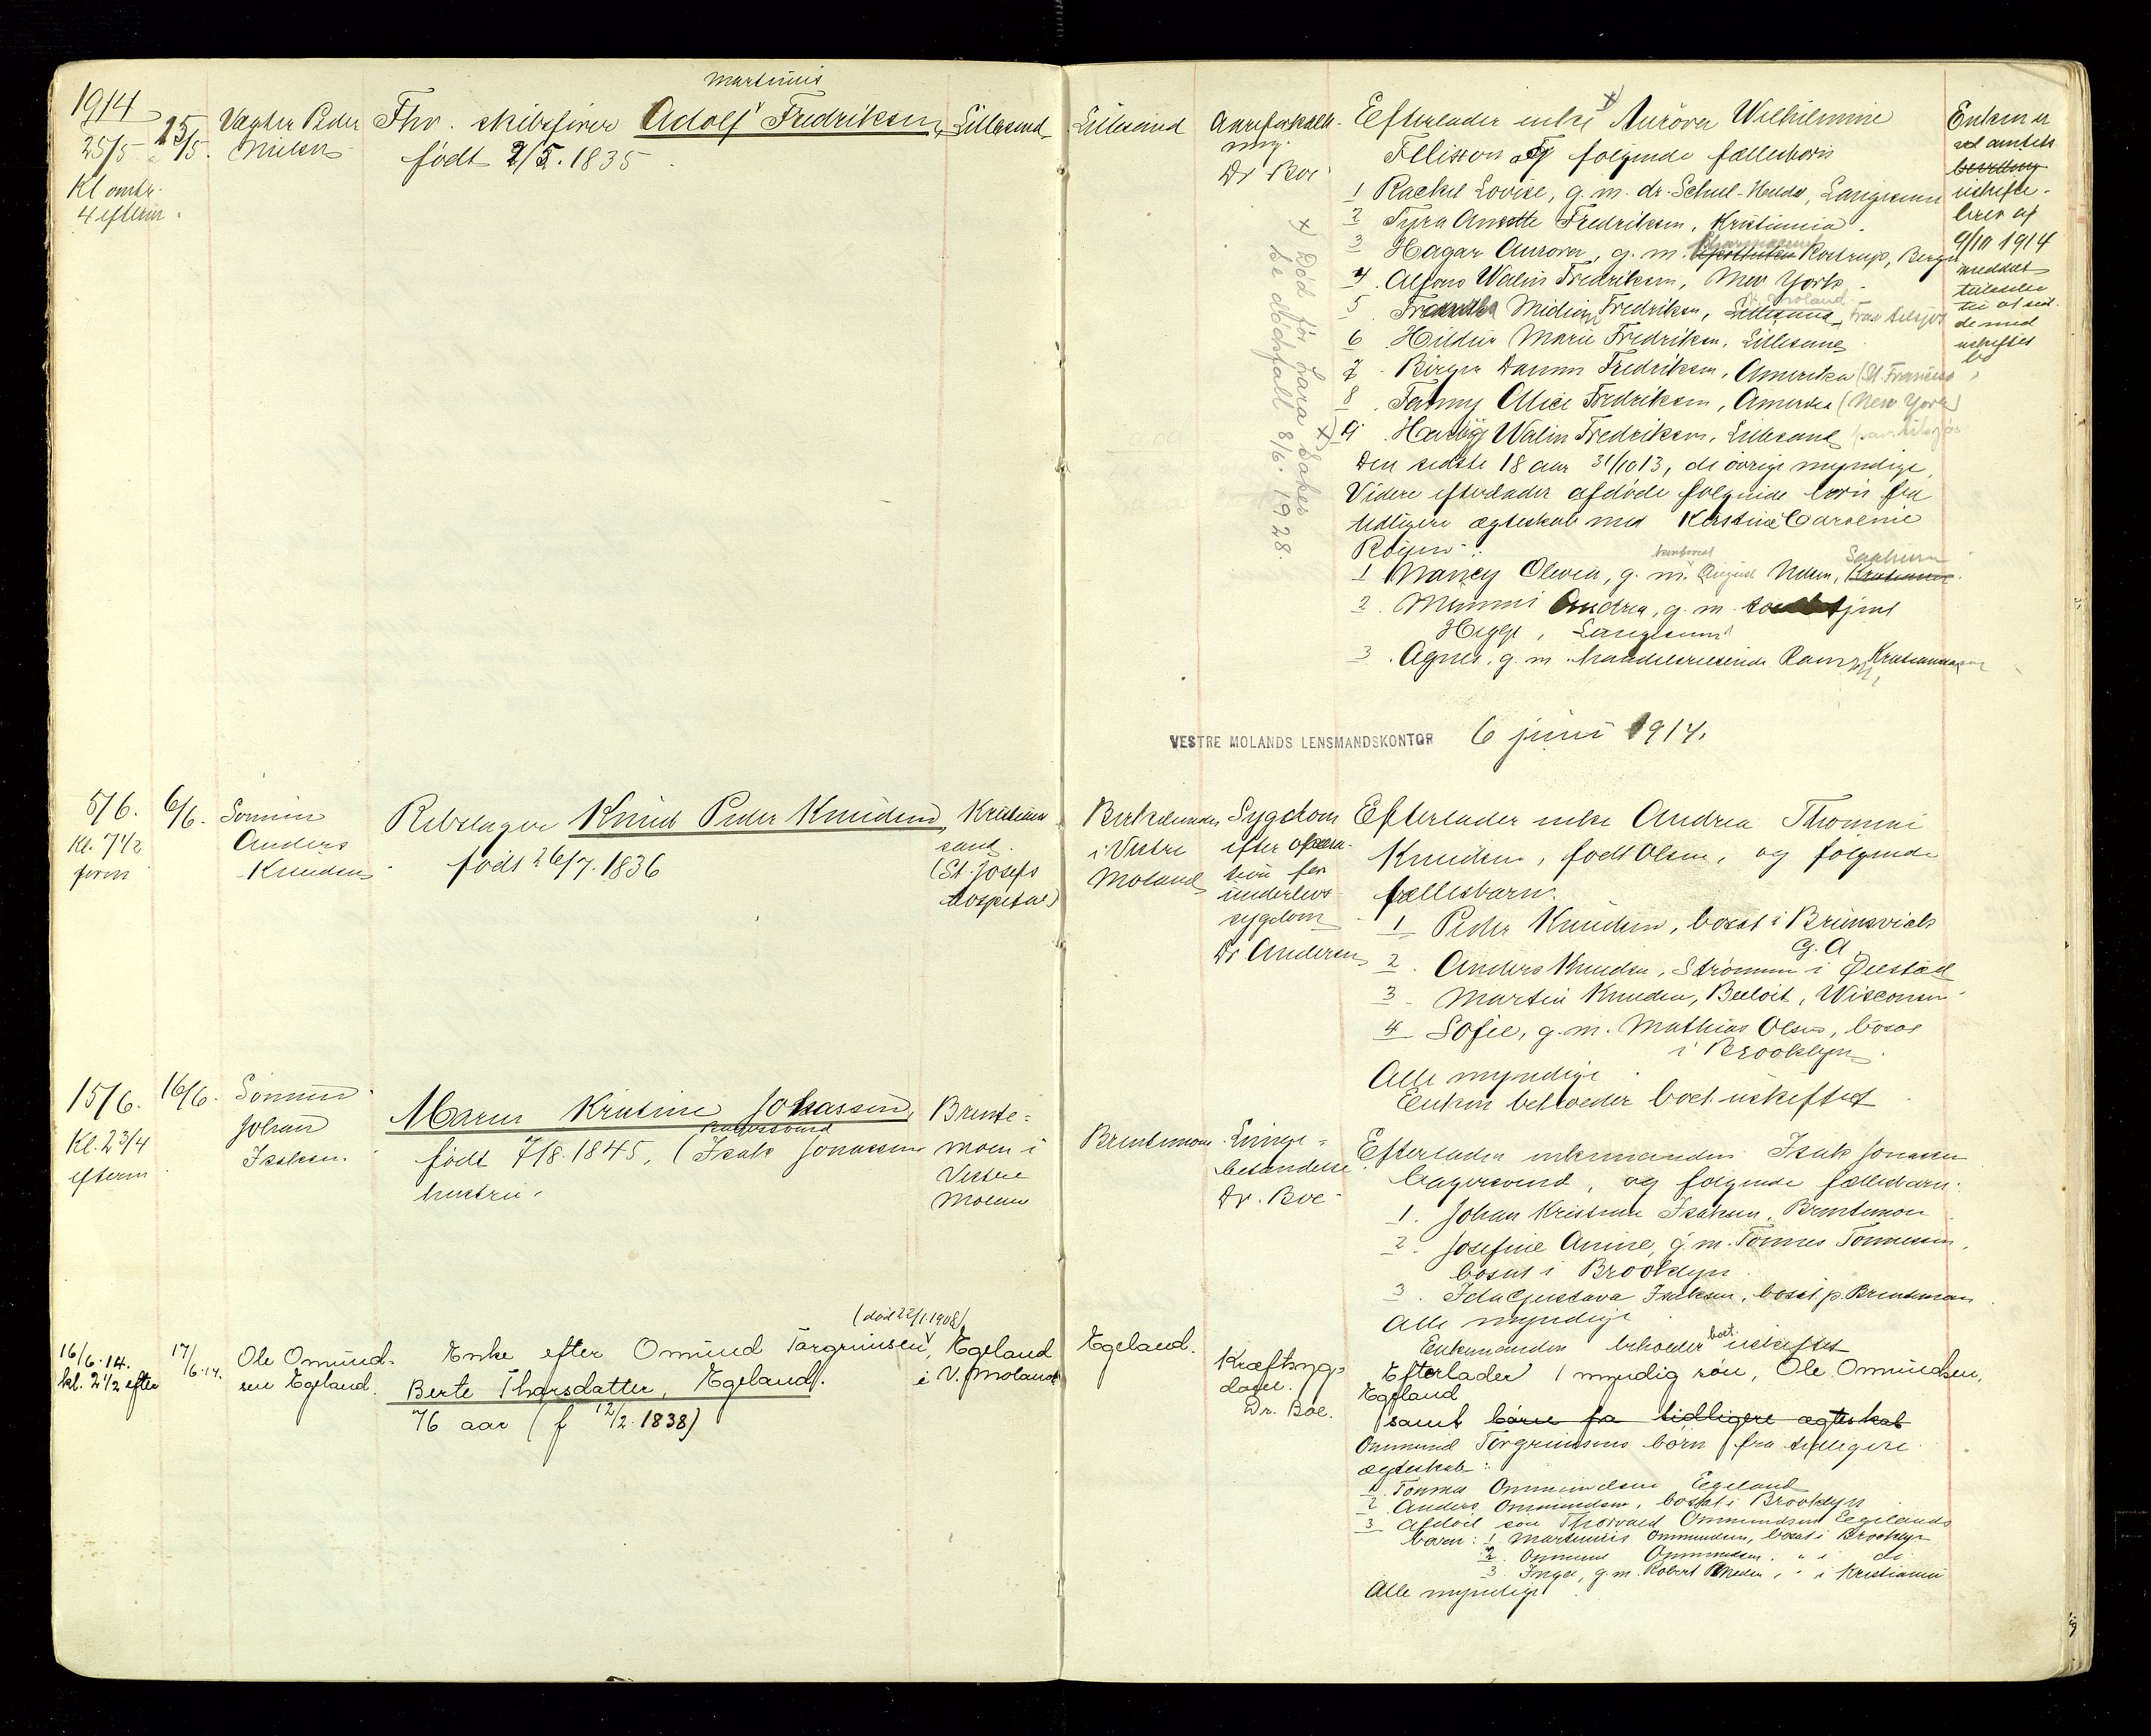 1914
25/5
Kl omtr.
4 efterm.
25/5.
Vægter Peder
Nielsen
Martinius
Fhv. skibsfører Adolf Fredriksen, Lillesand
født 2/5. 1835
Lillesand
Aareforkalk-
ning.
Dr Boe
Efterlader enke x) Aurora Wilhelmine
og følgende fællesbørn
1 Rachel Lovise, g. m. dr. Langesund
2 Tyra Anette Fredriksen, Kristiania.
3 Hagar Aurora, g. m. Apotheker Rostrup, Bergen
4. Alfons Walin Fredriksen, New York
5. Fredriksen, Lillesand
6. Hildur Marie Fredriksen, Lillesand
7. Birger Fredriksen, Amerika (St. Francisco)
8. Fanny Alice Fredriksen, Amerika (New York)
x) 9. Walin Fredriksen, Lillesand
Den sidste 18 aar 31/10 13, de øvrige myndige.
Videre efterlader afdøde følgende børn fra
tidligere ægteskab med Kirstine
1 Nancy Olivia, g. m. August Nilsen, Kristiania.
2. Mimmi Andrea, g. m.
Langesund
3. Agnes, g. m. handelsreisende Kristiania
x) Død før Lara Bakes
se dødsfall 8/6. 1928.
Enken er
ved amtets
bevilling
uskifte-
brev af
9/10 1914
meddelt
tilladelse
til at sid-
de med
uskiftet
bo
VESTRE MOLANDS LENSMANDSKONTOR 6 juni 1914.
5/6.
Kl. 7 1/2
form
6/6.
Sønnen
Anders
Knudsen
Rebslager Knud Peder Knudsen,
født 26/7. 1836
Kristian
sand.
(St. Josefs
hospital)
Birkelunden
i Vestre
Moland
Sygdom
efter opera-
tion for
underlivs
sygdom
Dr Andersen
Efterlader enke Andrea Thomine
Knudsen, født Olsen, og følgende
fællesbarn:
1 Peder Knudsen, bosat i Brunsvick
G. A.
2. Anders Knudsen, Strømmen i Øiestad
3. Martin Knudsen, Beeloit, Wisconsin
4 Sofie, g. m. Mathias Olsen, bosat
i Brooklyn.
Alle myndige.
Enken beholder boet uskiftet.
15/6.
Kl. 2 3/4
efterm
16/6.
Sønnen
Johan
Isaksen.
Maren Kristine Johassen,
født 7/8. 1845, (Isak Jonassen
hustru.
Brente-
moen i
Vestre
Moland
Brentemoen
Lunge-
betændelse
Dr. Boe
Efterlader enkemanden Isak Jonassen
og følgende fællesbarn:
1. Johan Kristian Isaksen, Brentemoen
2. Josefine Anine, g. m. Tønnes Tønnessen,
bosat i Brooklyn
3. Ida Gustava Isaksen, bosat p. Brentemoen
Alle myndige
Enkemanden beholder boet uskiftet
16/6. 14.
kl. 2 1/2 efter
17/6. 14.
Ole Omund-
sen Egeland.
(død 22/1. 1908)
Enke efter Omund Torgrimsen, Egeland
Berte Tharsdatter, Egeland. i V. Moland
76 aar (f 12/2. 1838)
Egeland.
Kræftsyg-
dom.
Dr. Boe.
Efterlader 1 myndig søn, Ole Omundsen,
Egeland
samt børn fra tidligere ægteskab
Ommund Torgrimsens børn fra tidligere
ægteskab:
1. Tønnes Ommundsen Egeland
2. Anders Ommundsen, bosat i Brooklyn
3 Afdød søn Thorvald Ommundsen Egelands
børn: 1 Martinius Ommundsen, bosat i Brooklyn
2. Ommund Ommundsen, " i do
3. Inga, g. m. Robert " i Kristiania
Alle myndige